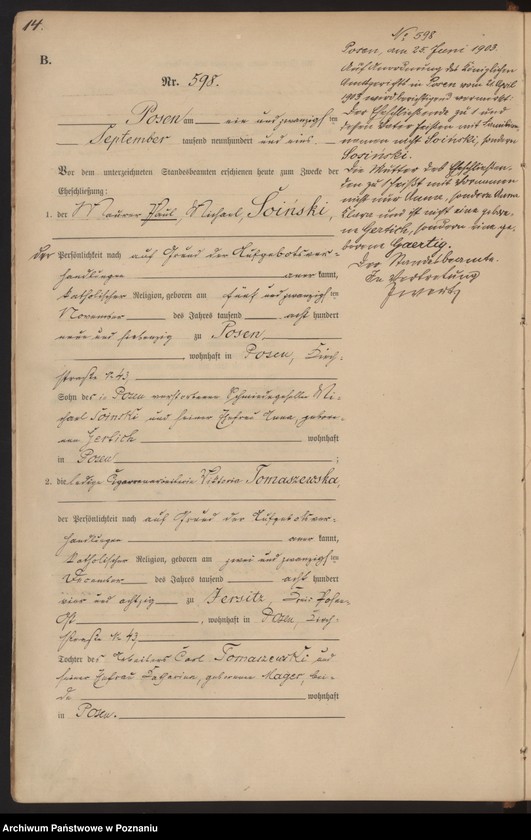 14.
B.
Nr. 598.
Posen am ein und zwanzigsten
September tausend neunhundert und eins.
Vor dem unterzeichneten Standesbeamten erschienen heute zum Zwecke der
Eheschließung:
1. der Maurer Paul Michael Soiński,
der Persönlichkeit nach auf Grund der Aufgebotsver-
handlungen anerkannt,
katholischer Religion, geboren am fünf und zwanzigsten
November des Jahres tausend acht hundert
neun und siebenzig zu Posen
, wohnhaft in Posen, Kirch-
straße № 43,
Sohn des in Posen verstorbenen Schmiedegesellen Mi-
chael Soinski und seiner Ehefrau Anna, gebore-
nen Gertich wohnhaft
in Posen ;
2. die ledige Cigarrenarbeiterin Viktoria Tomaszewska,
der Persönlichkeit nach auf Grund der Aufgebotsver-
handlungen anerkannt,
katholischer Religion, geboren am zwei und zwanzigsten
December des Jahres tausend acht hundert
vier und achtzig zu Jersitz, Kreis Posen
Ost , wohnhaft in Posen, Kirch-
straße № 43,
Tochter des Arbeiters Carl Tomaszewski und
seiner Ehefrau Katharina, geborene Mager, bei-
de wohnhaft
in Posen.
№ 598
Posen, am 25. Juni 1903.
Auf Anordnung des Königlichen
Amtsgerichts in Posen vom 21 April
1903 wird berichtigend vermerkt:
Der Eheschließende zu 1 und
dessen Vater heißen mit Familien-
namen nicht Soiński, sondern
Sosiński.
Die Mutter des Eheschließen-
den zu 1 heißt mit Vornamen
nicht nur Anna, sondern Anna
Klara und ist nicht eine gebore-
ne Gertich, sondern eine ge-
borene Gaertig.
Der Standesbeamte.
In Vertretung
Archiwum Państwowe w Poznaniu